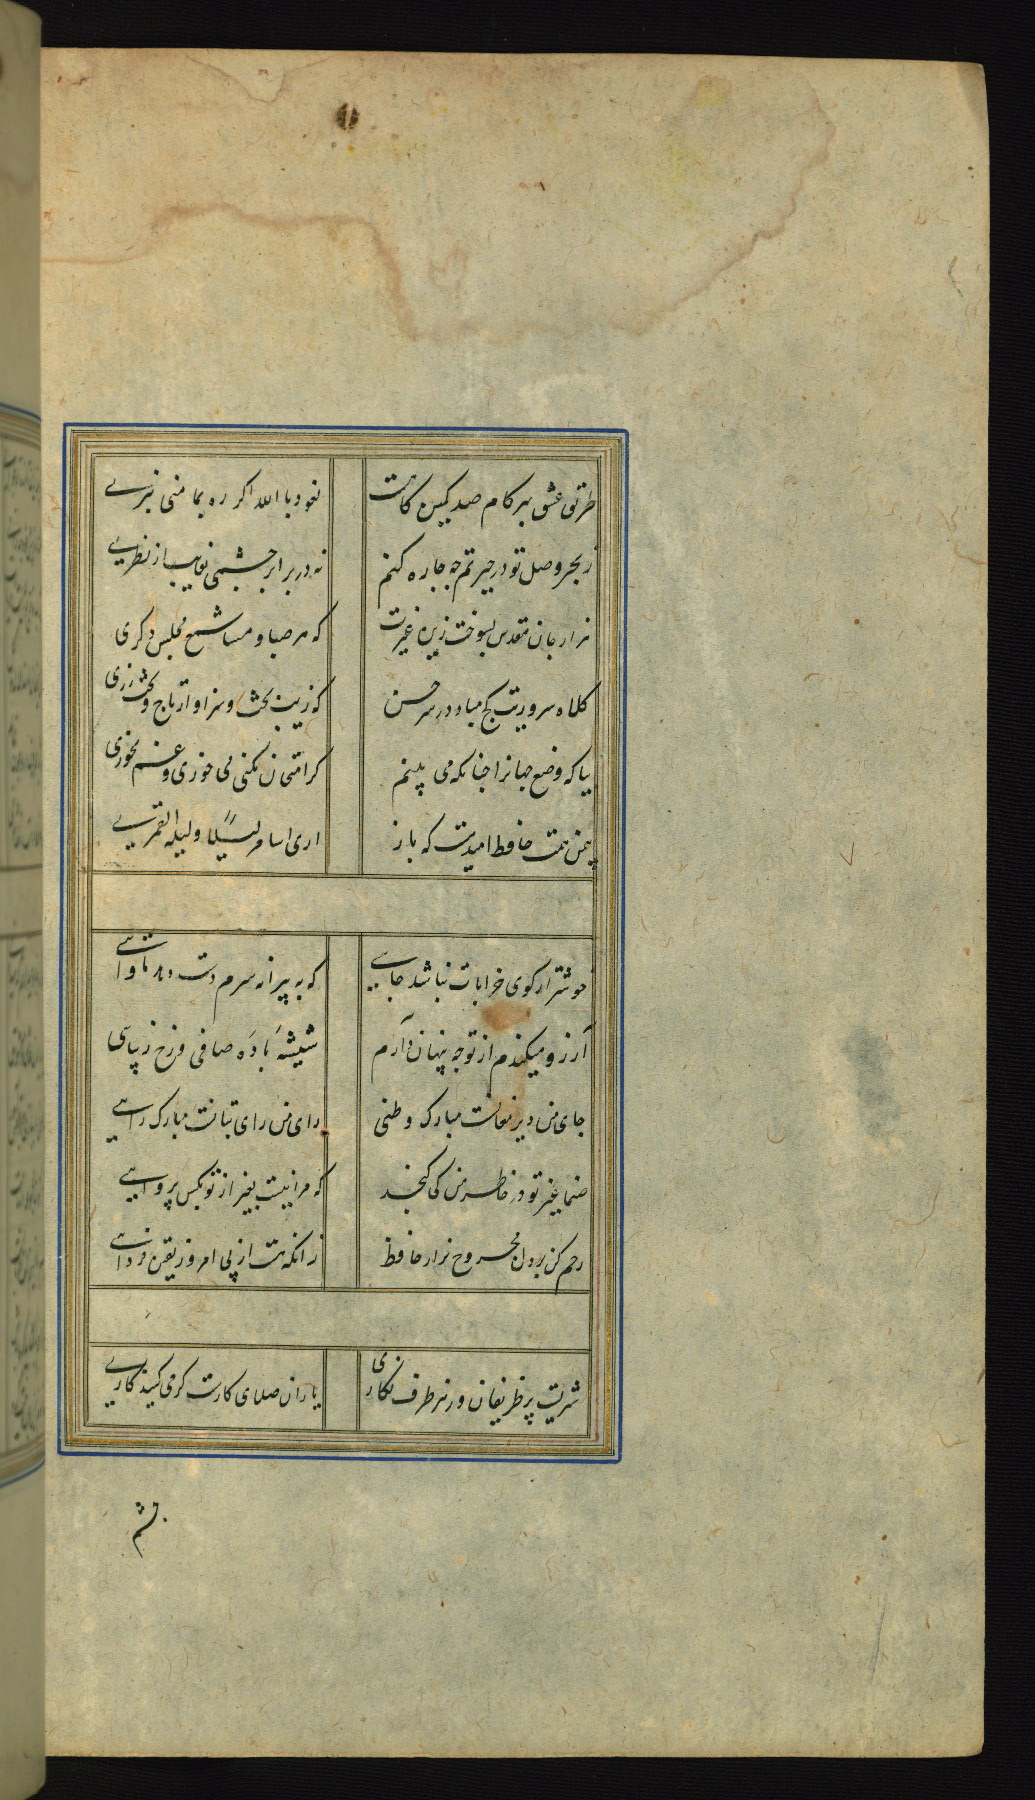 طریق عشق بهر کام صد کمین گاهست نعوذ باالله اکر ره بما منی نبری
زبحر وصل تو در حیرتم چه چاره کنم نه در برابر چشمی نه غایب از نظری
هزار جان مقدس بسوخت زین غیرت که هر صبا و مسا شمع مجلس دکری
کلاه سروریت کج مباد در سر حسن که زیب بخت و سزاوار تاج و تخت زری
بیا که وضع جهانرا چنانکه می بینم کر امتحان بکنی می خوری و غم نخوری
بیمن همت حافظ امیدست که باز اری اسامر لیلا و لیله القمری
خوشتر از کوی خرابات نباشد جایی که به پیرانه سرم دست دهد ماوایی
آرزو میکندم از تو چه پنهان دارم شیشهٔ بادهٔ صافی و رخ زیبایی
جای من دیر مغانست مبارک وطنی رای من رای بتانست مبارک رایی
صنما غیر تو در خاطر من کی کنجد که مرا نیست بغیر از تو بکس پروایی
رحم کن بر دل مجروح نزار حافظ زانکه هست از پی امروز یقین فردایی
شهریست پر ظریفان وز هر طرف نکاری یاران صلای کارست کر می کنید کاری